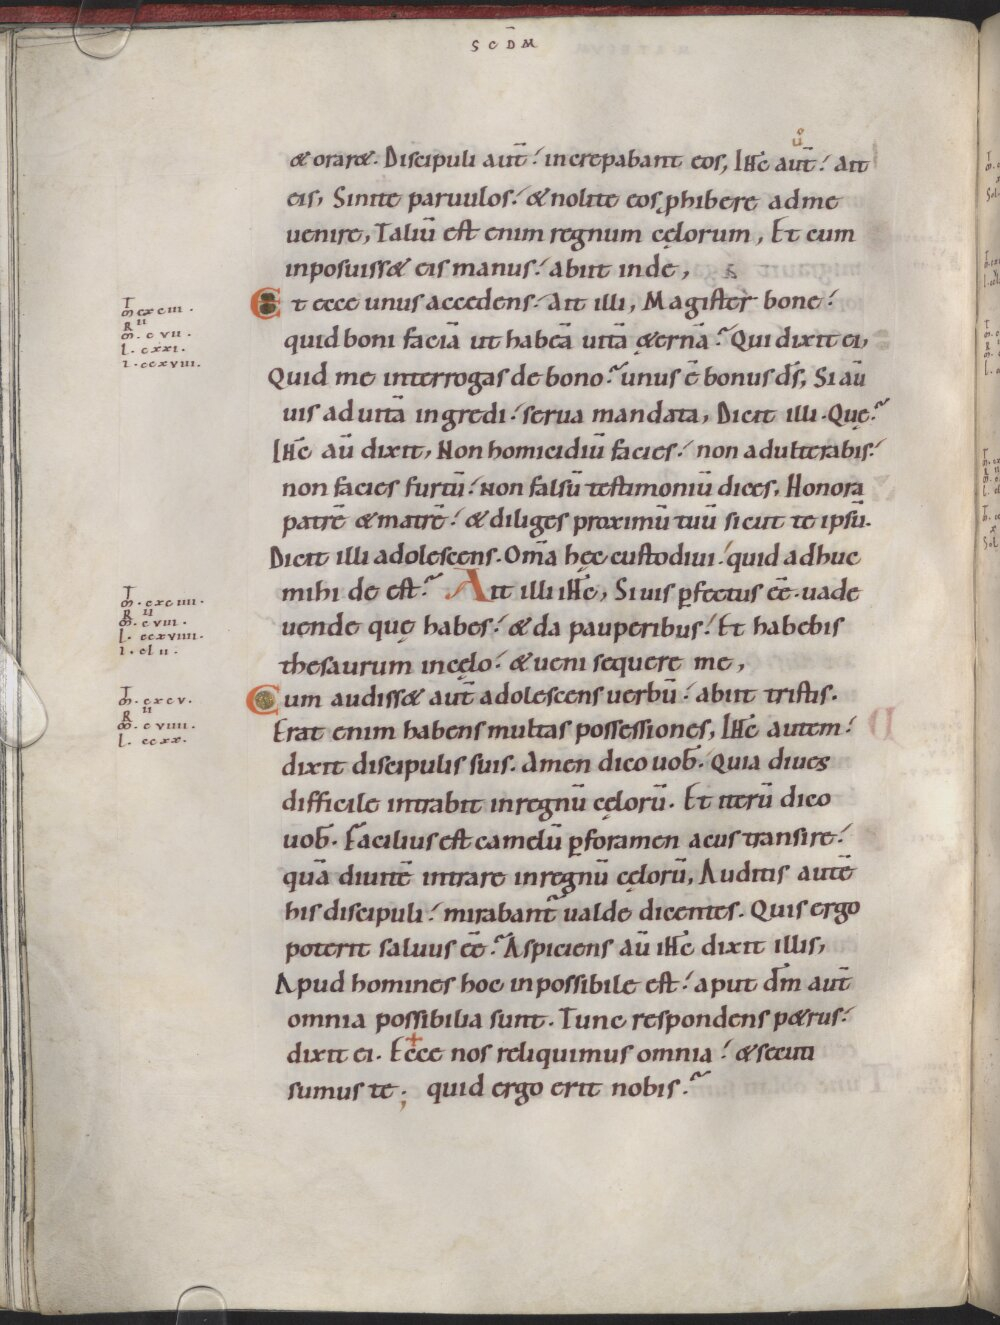 SCDM̄
& orar&. Discipuli aut̄ increpabant eos, Ih̄c aut̄ Ait
eis, Sinite paruulos & nolite eos ꝓhibere adme
uenire, Taliū est enim regnum cęlorum, Et cum
inposuiss& eis manus abiit inde,
Et ecce unus accedens Ait illi, Magister bone
quid boni faciā ut habeā uitā &ernā? Qui dixit ei,
Quid me interrogas de bono? unus ē bonus ds̄, Si aū
uis ad uitā ingredi serua mandata, Dicit illi. Quę?
Ih̄c aū dixit, Non homicidiū facies non adulterabis
non facies furtū Non falsū testimoniū dices, Honora
patrē & matrē & diliges proximū tuū sicut te ipsū.
Dicit illi adolescens. Om̄a hęc custodiui quid adhuc
mihi de est? Ait illi ih̄c, Si uis ꝑfectus eē uade
uende quę habes & da pauperibus Et habebis
thesaurum incęlo & ueni sequere me,
Cum audiss& aut̄ adolescens uerbū abiit tristis.
Erat enim habens multas possessiones, Ih̄c autem
dixit discipulis suis. Amen dico uob̄. Quia diues
difficile intrabit inregnū cęlorū. Et iterū dico
uob̄. Facilius est camelū ꝑforamen acus transire
quā diuitē intrare inregnū cęlorū, Auditis autē
his discipuli mirabant̄ ualde dicentes. Quis ergo
poterit saluus eē? Aspiciens aū ih̄c dixit illis,
Apud homines hoc inpossibile est aput dm̄ aut̄
omnia possibilia sunt. Tunc respondens p&rus
dixit ei. Ecce nos reliquimus omnia & secuti
sumus te; quid ergo erit nobis?
T
m̄. cxciii.
R ii
m̄. c vii.
l. cxxi.
l. ccxviii.
T
m̄. cxciiii.
R ii
m̄. cviii.
l. ccxviiii.
l. cl ii.
T
m̄. cxcv.
R ii
m̄. c viiii.
l. ccxx.